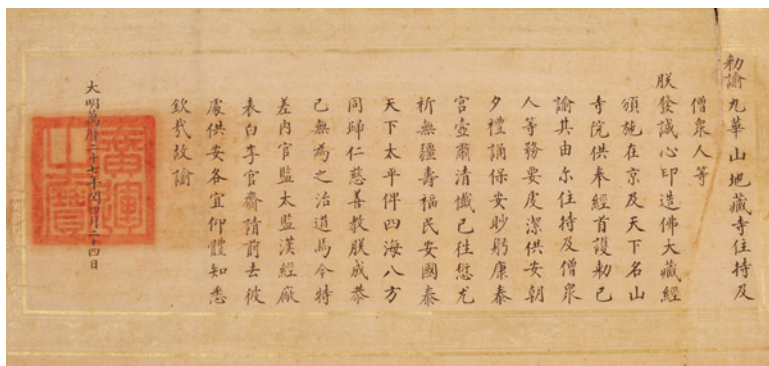 勑諭九華山地藏寺住持及
僧衆人等
朕發誠心印造佛大藏經
頒施在京及天下名山
寺院供奉經首護勑已
諭其由尔住持及僧衆
人等務要虔潔供安朝
夕禮誦保安眇躬康泰
宮壼肅清懺已徃愆尤
祈無疆壽福民安國泰
天下太平俾四海八方
同歸仁慈善教朕成恭
己無為之治道焉今特
差内官監太監漢經廠
表白李官齋請前去彼
處供安各宜仰體知悉
欽哉故諭
大明萬曆二十七年閏四月二十四日
廣運之寶